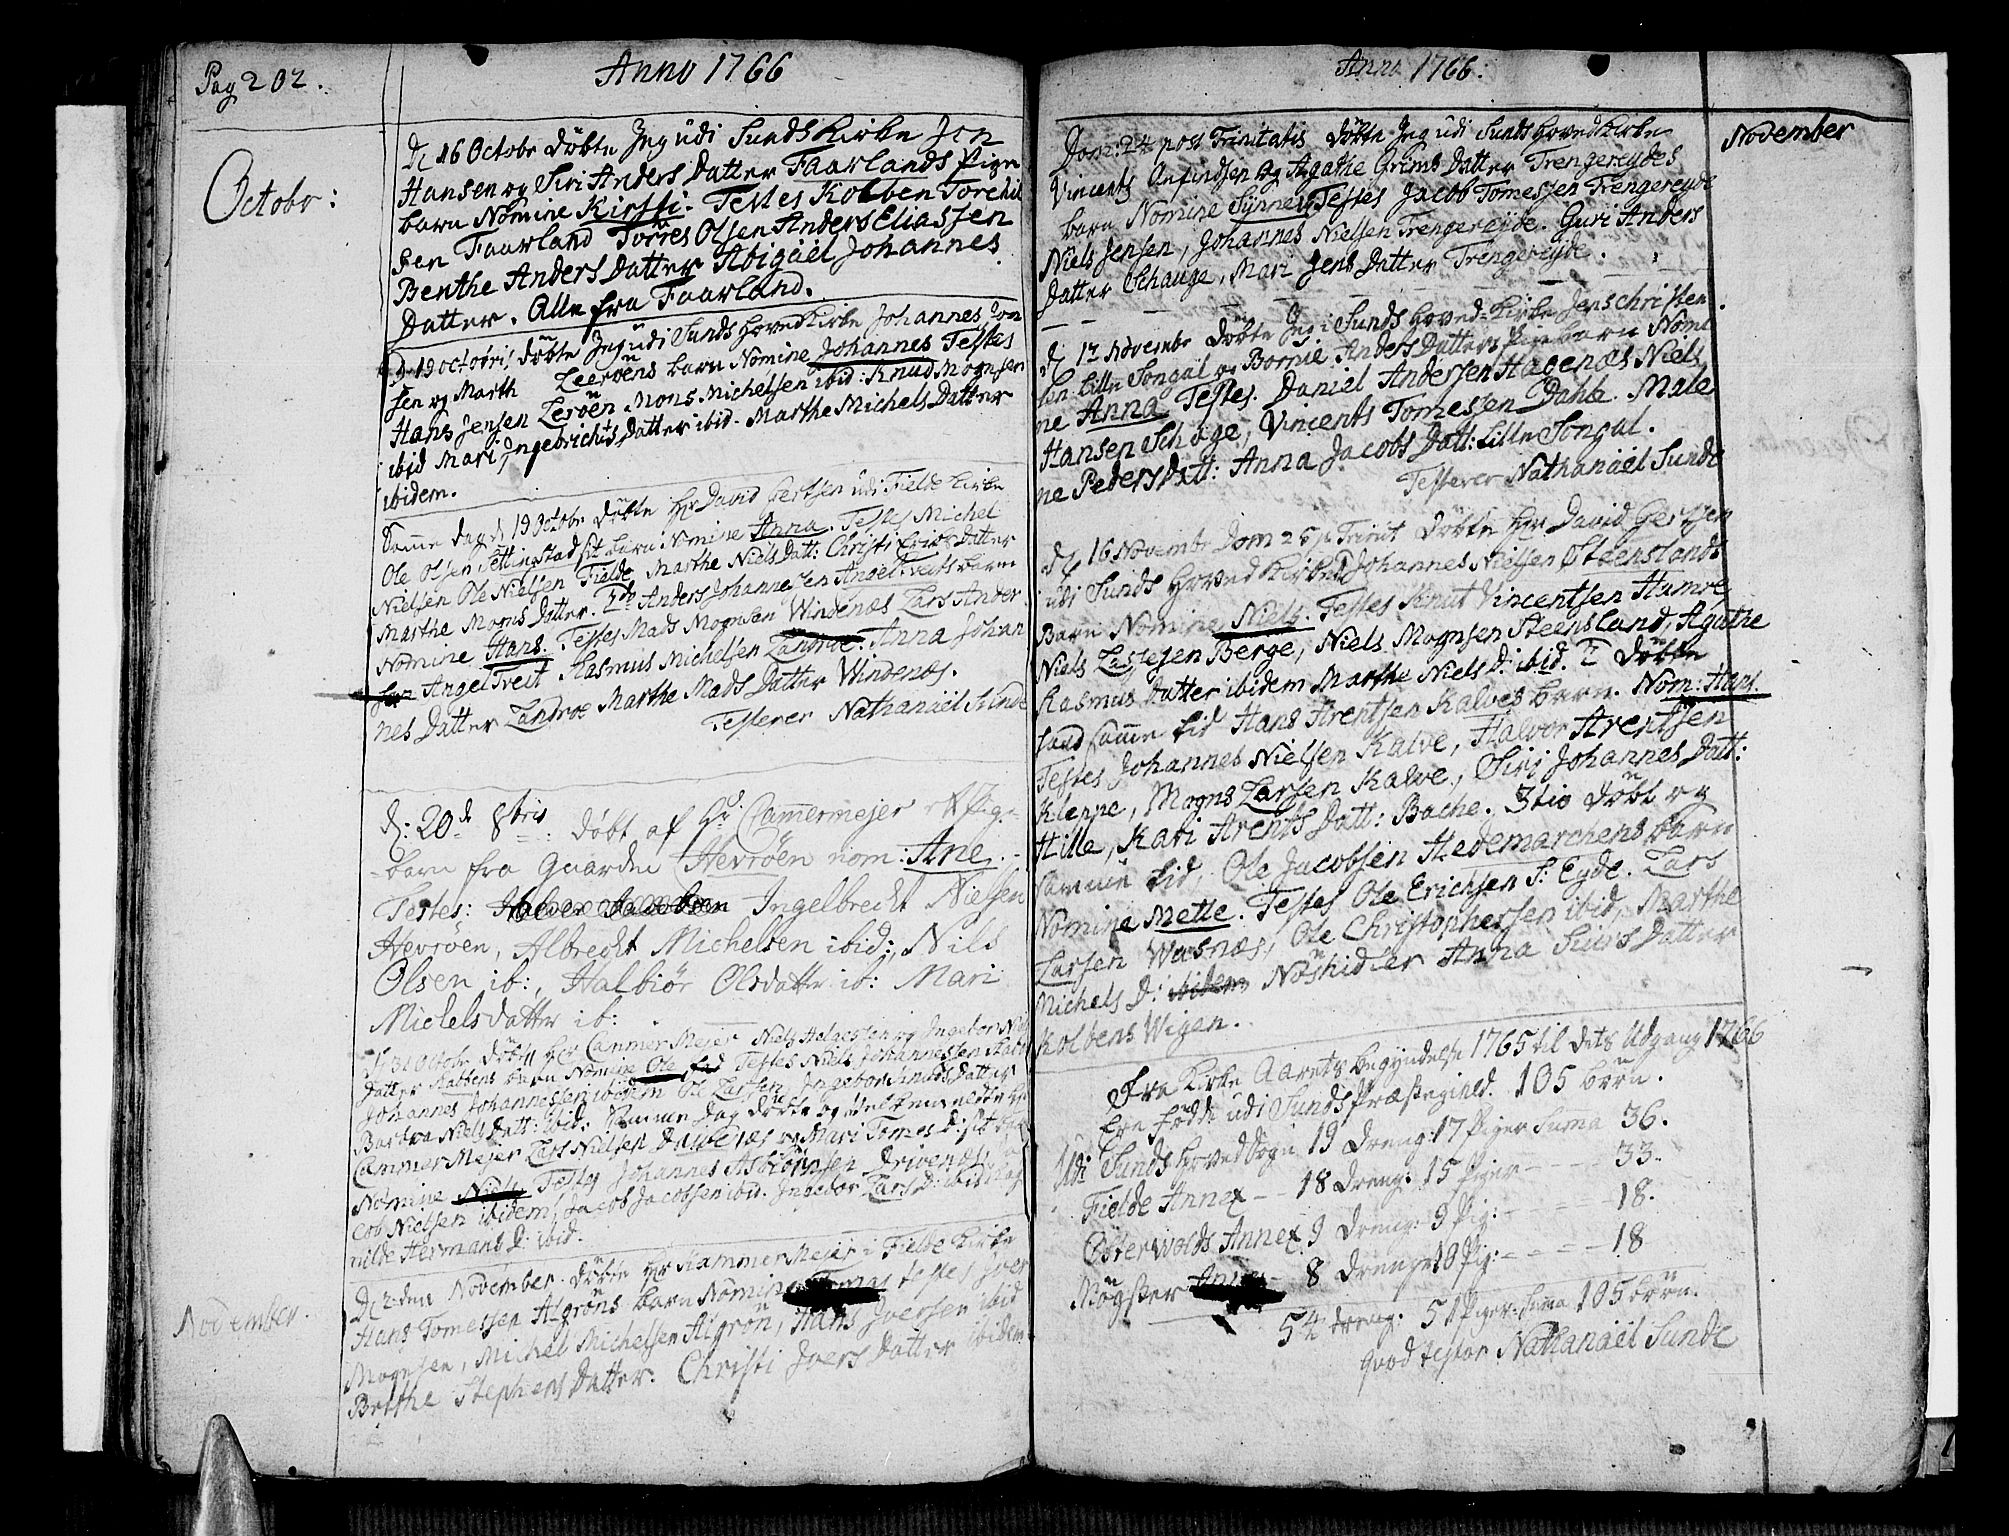 Pag 202.
Anno 1766
Octobr:
D 16 Octobr Döbte Jeg udi Sunds Kirke Jon
Hansen og Siri Anders Datter Faarlands Pige
barn Nomine Kirsti. Testes Kolben Torchil
sen Faarland Törres Olsen Anders Eliassen
Benthe Anders Datter Abigäel Johannes
Datter. Alle fra Faarland.
D 19 octobris döbte Jeg udi Sunds Hoved Kirke Johannes Jon
sen og Marth Leeröens barn Nomine Johannes Testes
Hans Jensen Leröen, Mons Michelsen ibid: Knud Mognsen
ibid Mari Ingebrichts Datter ibid. Marthe Michels Datter
ibidem.
Samme dag d 19 Octobr Döbte Hr David Gertsen udi Fielde Kirke
Ole Olsen Tettingstad sit barn Nomine Anna. Testes Michel
Nielsen Ole Nielsen Fielde Marthe Niels Datt: Christi Erics Datter
Marthe Mogns Datter. 2do Anders Johannesen Angeltveits barn
Nomine Hans. Testes Mads Mognsen Windenæs Lars Ander
sen Angeltveit Rasmus Michelsen Landroe. Anna Johan
nes Datter Landroe Marthe Mads Datter Windenæs.
Testerer Nathanäel Sunde
d: 20d 8bris döbt af Hr Cammermejer et Pige-
-barn fra Gaarden Hevröen nom: Ane.
Testes: Ingelbreckt Nielsen
Hevröen, Albreckt Michelsen ibid:, Nils
Olsen ib:, Halbiör Olsdatter ib: Mari
Michelsdatter ib:
d 31 Octobr Döbte Hr Cammer Mejer Niels Helgessen og Ingebor Niels
Datter Rabbens barn Nomine Ole Testes Niels Johannessen
Johannes Johannessen ibidem Ole Larssen, Ingebor Datter
Barbra Niels Datt: ibid: Samme Dag döbte og Hr
Cammer Mejer Lars Nielsen og Mari Tomes D: sit barn
Nomine Niels Testes Johannes Asbiörnsen Drivenæs, Ja
cob Nielsen ibidem, Jacob Jacobsen ibid. Ingebor Lars D: ibid
nilde Hermans D: ibid.
November.
D 2den November. Döbte Hr Kammer Mejer i Fielde Kirke
Hans Tomessen Algröns barn Nomine Tomas testes Joer
Mognsen, Michel Michelsen Algrön, Hans Joersen ibid
Brithe Stephens Datter. Christi Joers Datter ibidem
Anno 1766:
November
Dom: 24 post Trinitatis Döbte Jeg udi Sunds Hoved Kirke
Vincents Anfindsen og Agathe Grims Datter Trengereydes
barn Nomine Synnev Testes Jacob Tomessen Trengereyde
Niels Jensen, Johannes Nielsen Trengereyde. Guri Anders
Datter Schauge, Mari Jens Datter Trengereyde.
D 12 Novembr Döbte Jeg i Sunds Hoved-Kirke Jens Christen
sen Lille Songal og Anders Datters Pige barn Nomi
ne Anna Testes. Daniel Andersen Hagenæs Niels
Hansen Schoge, Vincents Tomessen Dahle. Male
ne Peders Datt: Anna Jacobs Datt: Lille Songal.
Testerer Nathanäel Sunde
D 16 Novembr Dom 25 p Trinit Döbte Hr David Gertsen
udi Sunds Hoved Kirke Johannes Nielsen Steenslands
Barn Nomine Niels. Testes Knut Vincentsen Hamre,
Niels Lassesen Berge, Niels Mognsen Steensland, Agathe
Rasmus Datter ibidem Marthe Niels D: ibid. 2 Döbte
hand samme tid Hans Arentsen Kalves barn. Nom: Hans
Testes Johannes Nielsen Kalve, Halvor Arentsen
Kleppe, Mogns Larsen Kalve, Siri Johannes Datt:
Hille, Kari Arents Datt: Bache. 3tio Döbt og
samme tid, Ole Jacobsen Hedemarchens barn
Nomine Mette. Testes Ole Erichsen S: Eyde. Lars
Larsen Wasnæs, Ole Christophersen ibid, Marthe
Michels D: ibidem Anna Siurs Datter
Kolbens Wigen.
Fra Kirke Aarets begyndelse 1765 til dets Udgang 1766
Ere födde udi Sunds Præstegield. 105 börn.
Udi Sunds Hoved Sogn 19 Dreng: 17 Piger Summa 36.
Fielde Annex - - 18 Dreng: 15 Piger - - - - 33.
Österwolds Annex 9 Dreng: 9 Pig: - - - 18.
Mögster - 8 Drenge 10 Pig: - - - - - 18
54 Dreng: 51 Piger. Summa 105 börn.
quod testor Nathanäel Sunde